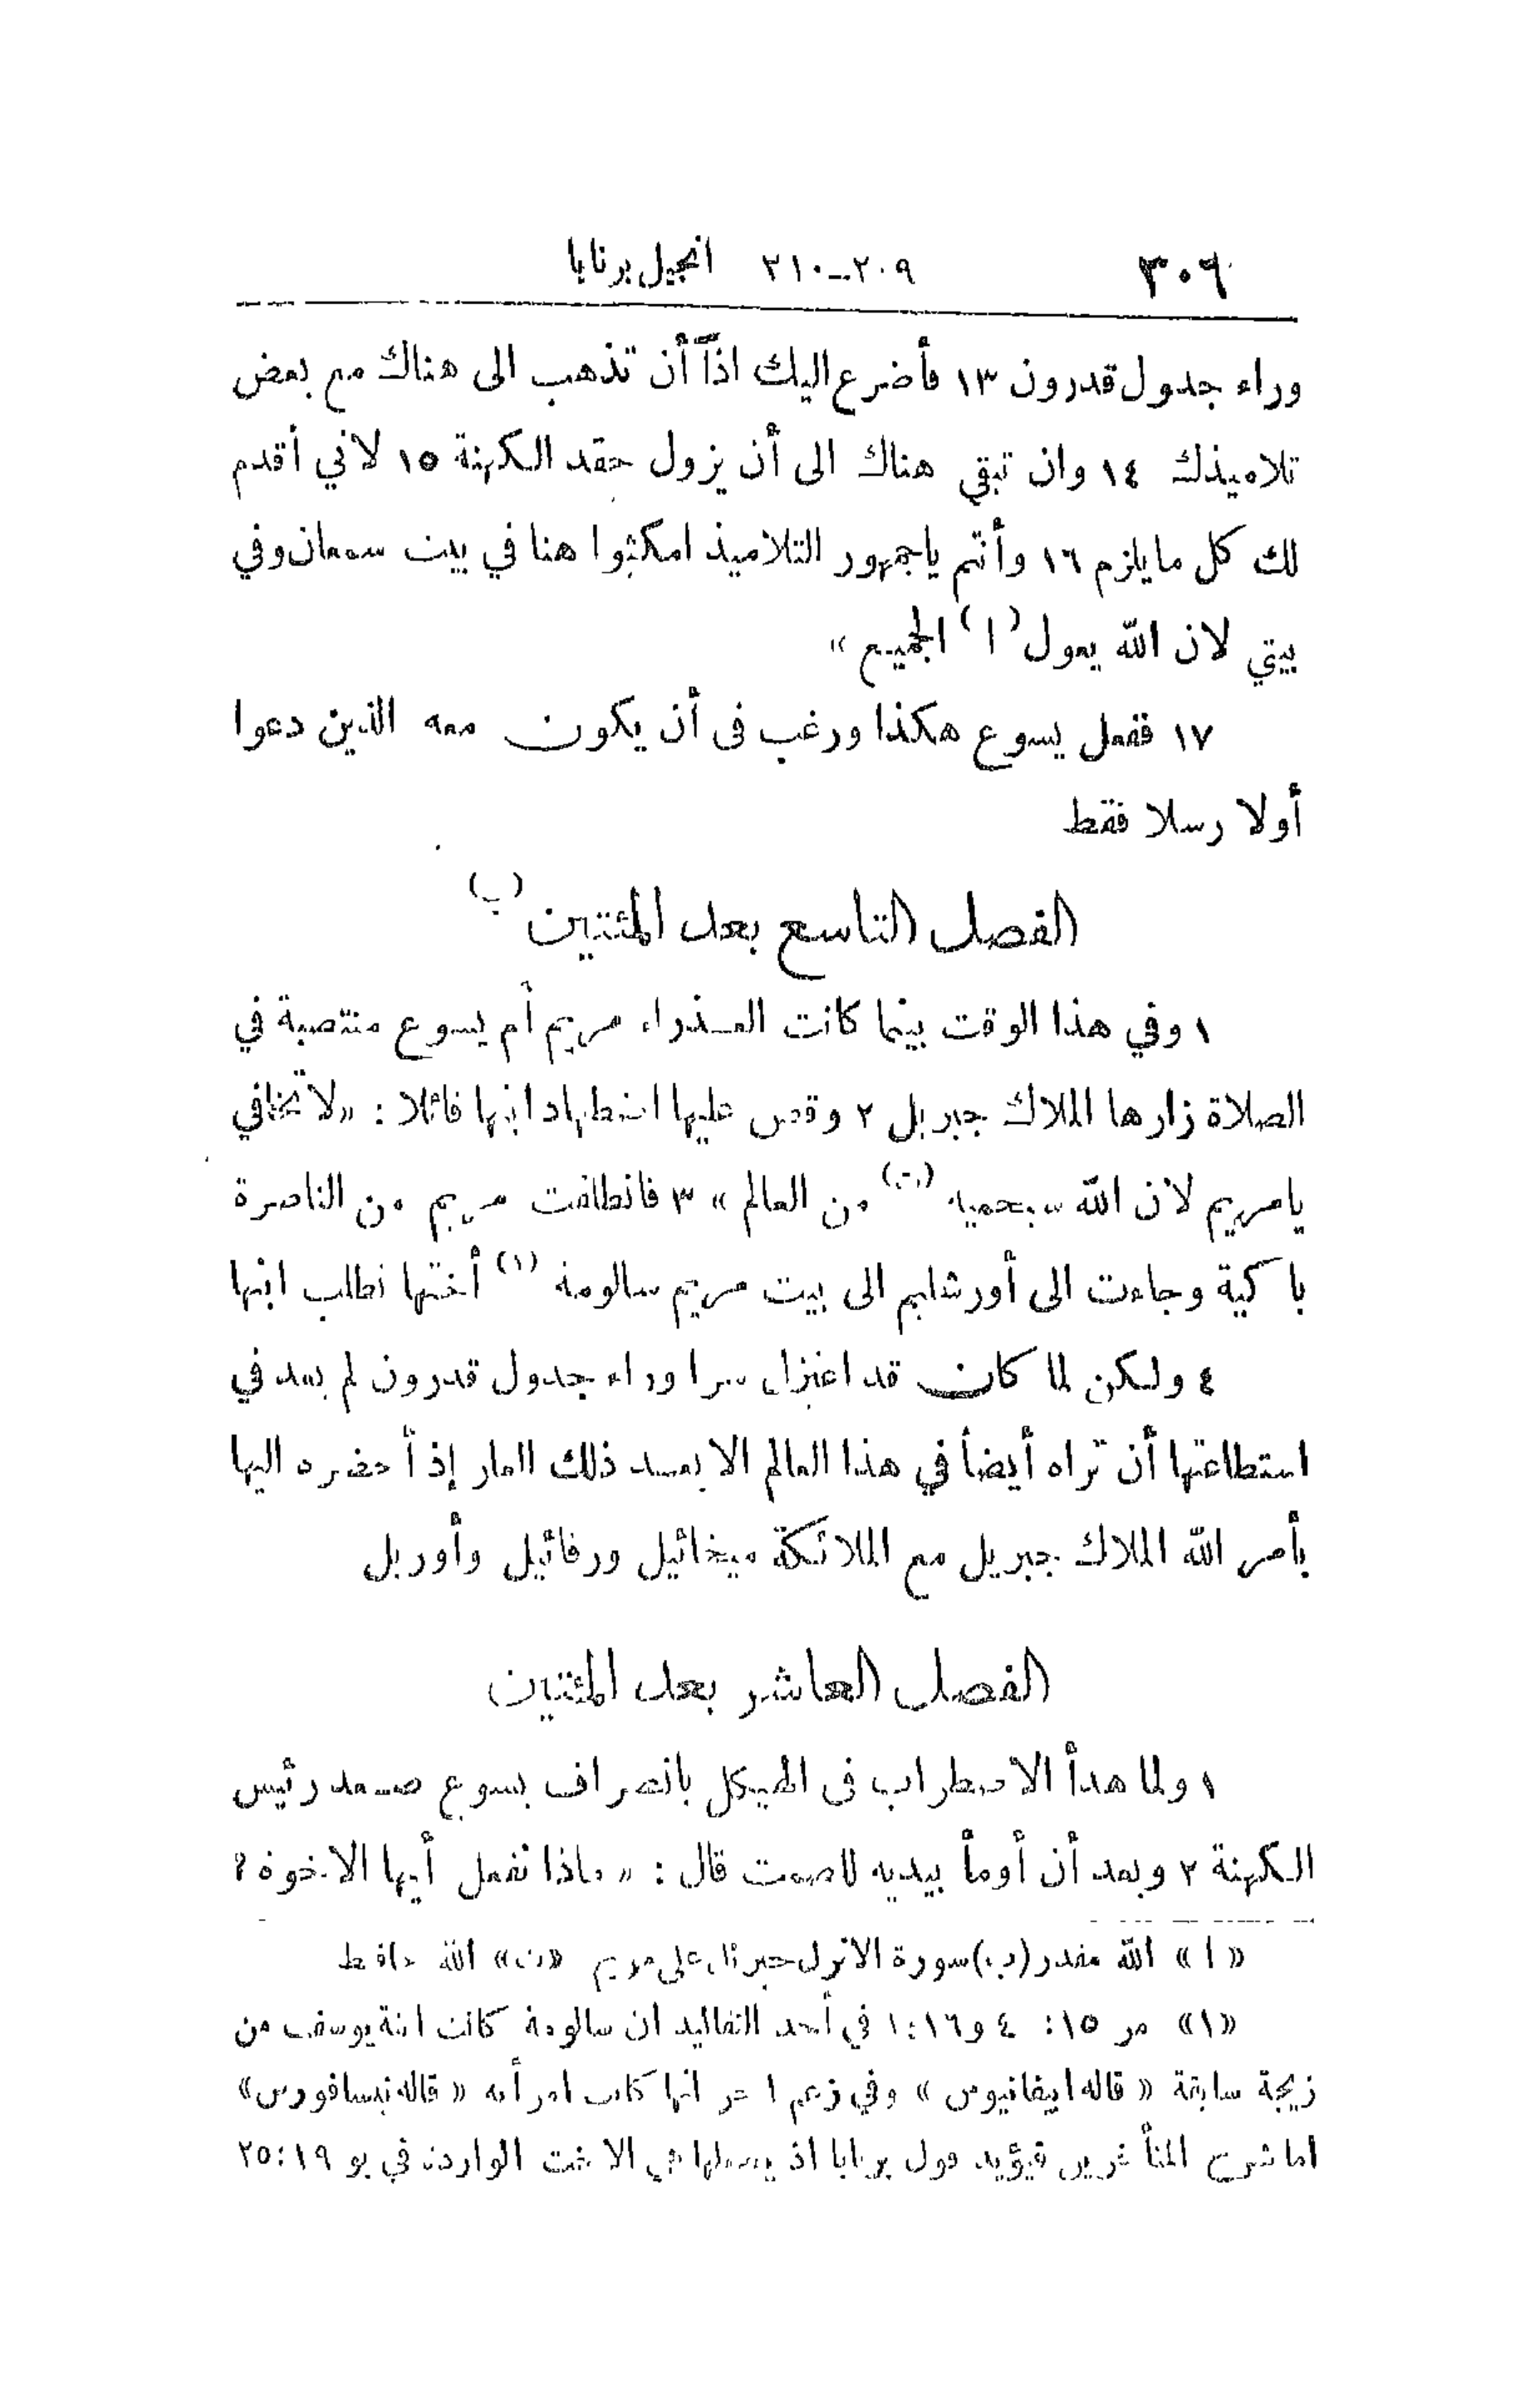 ٣٠٦ ٢٠٩—٢١٠ انجيل برنابا
وراء جدول قدرون ١٣ فأضرع اليك اذاً أن تذهب الى هناك مع بعض
تلاميذك ١٤ وان تبقي هناك الى أن يزول حقد الكهنة ١٥ لاني أقدم
لك كل مايلزم ١٦ وأنتم ياجمهور التلاميذ امكثوا هنا في بيت سمعان وفي
بيتي لان الله يعول (ا) الجميع »
١٧ ففعل يسوع هكذا ورغب فى أن يكون معه الذين دعوا
أولا رسلا فقط
الفصل التاسع بعد المئتين (ب)
١ وفي هذا الوقت بينما كانت العذراء مريم أم يسوع منتصبة في
الصلاة زارها الملاك جبريل ٢ وقص عليها اضطهاد ابنها قائلا : « لا تخافي
يامريم لان الله سيحميه (ت) من العالم » ٣ فانطلقت مريم من الناصرة
باكية وجاءت الى أورشليم الى بيت مريم سالومة (١) أختها تطلب ابنها
٤ ولكن لما كان قد اعتزل سرا وراء جدول قدرون لم يعد في
استطاعتها أن تراه أيضاً في هذا العالم الا بعد ذلك العار إذ أحضره اليها
بأمر الله الملاك جبريل مع الملائكة ميخائيل ورفائيل وأوريل
الفصل العاشر بعد المئتين
١ ولما هدأ الاضطراب فى الهيكل بانصراف يسوع صعد رئيس
الكهنة ٢ وبعد أن أومأ بيديه للصمت قال : « ماذا نفعل أيها الاخوة ؟
« ا » الله مقدر (ب) سورة الانزل جبرئل على مريم «ت» الله حافظ
«١» مر ١٥: ٤ و١:١٦ في أحد التقاليد ان سالومة كانت ابنة يوسف من
زيجة سابقة « قاله ابيفانيوس » وفي زعم اخر انها كانت امرأته « قاله نيسافورس»
اما شرح المتأخرين فيؤيد قول برنابا اذ يجعلها هي الاخت الواردة في يو ٢٥:١٩